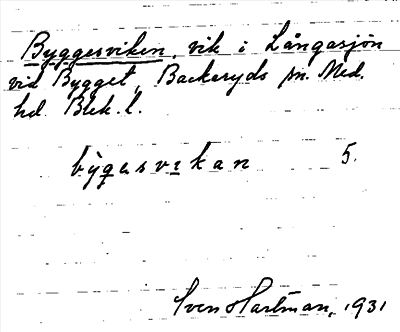 Byggesviken, vik i Långasjön
vid Bygget, Backaryds sn. Med.
hd. Blek. l.
bỳgesvikan 5.
Sven Hartman, 1931